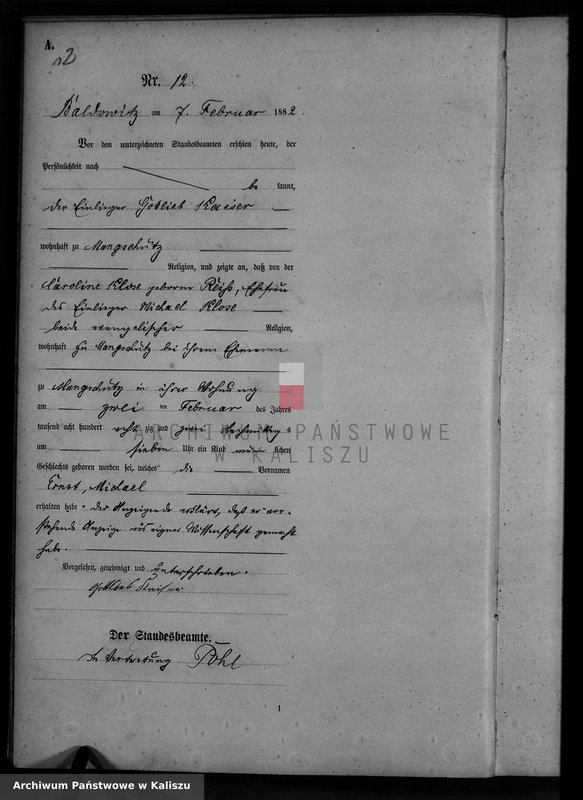 A.
12
Nr. 12.
Baldowitz am 7. Februar 1882.
Vor dem unterzeichneten Standesbeamten erschien heute, der
Persönlichkeit nach
be kannt,
der Einlieger Gottlieb Kaiser
wohnhaft zu Mangschütz
Religion, und zeigte an, daß von der
Caroline Klose geborne Reiß, Ehefrau
des Einlieger Michael Klose
beide evangelischer Religion,
wohnhaft zu Mangschütz bei ihrem Ehemanne
zu Mangschütz in ihrer Wohnung
am zwei ten Februar des Jahres
tausend acht hundert acht zig und zwei Nachmittags
um sieben Uhr ein Kind männ lichen
Geschlechts geboren worden sei, welches die Vornamen
Ernst, Michael
erhalten habe. Der Anzeigende erklärt, daß er vor-
stehende Anzeige aus eigner Wissenschaft gemacht
habe.
Vorgelesen, genehmigt und unterschrieben.
Gottlieb Kaiser
Der Standesbeamte.
In Vertretung Pohl
1
ARCHIWUM PAŃSTWOWE
W KALISZU
Archiwum Państwowe w Kaliszu